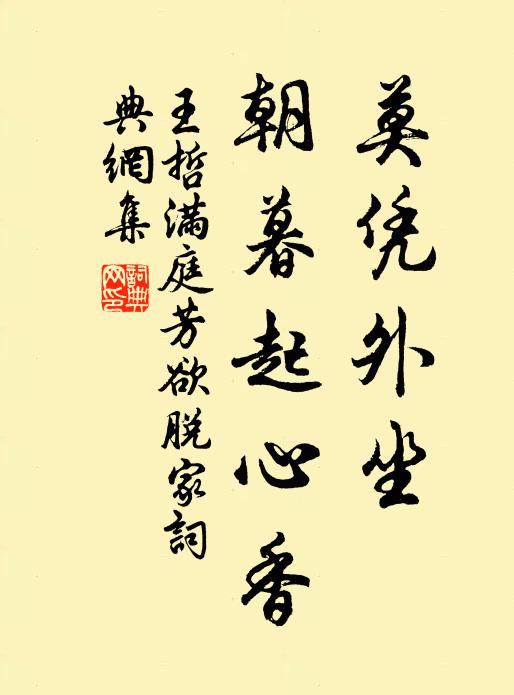 莫凭外坐
朝暮起心香
王哲满庭芳欲脱家詞
典網集
詞典网印